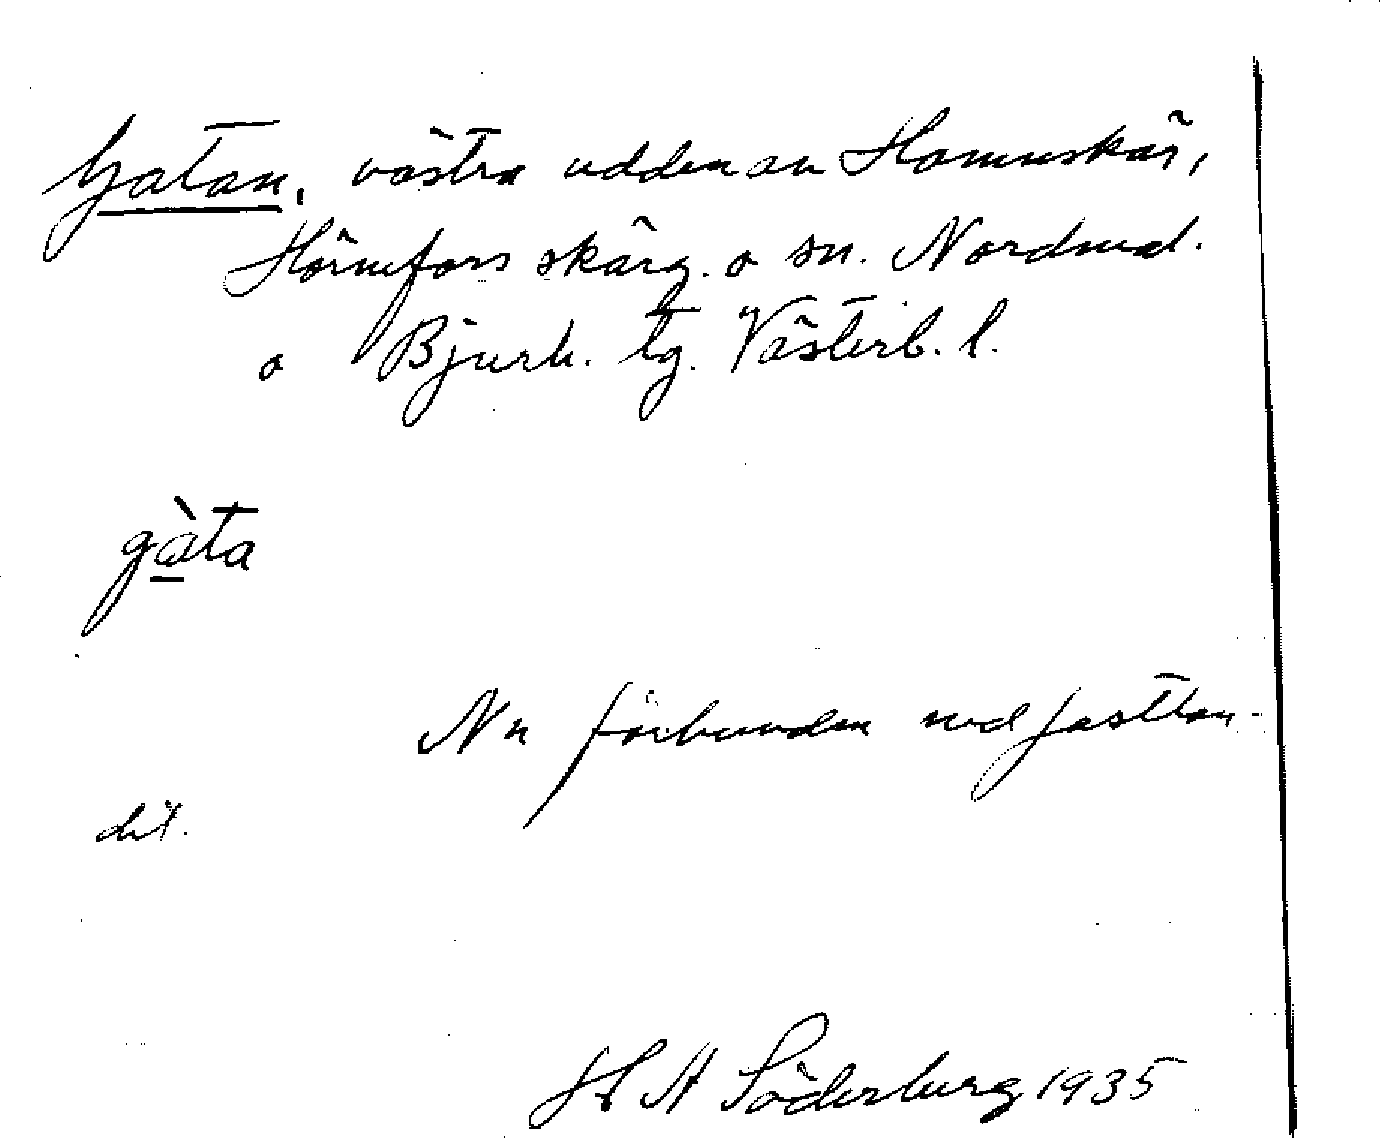 Gatan, västra udden av Hamnskär,
Hörnefors skärg. o sn. Nordmal.
o Bjurh. tg. Västerb. l.
gàta
Nu förbunden med fastlan-
det.
H A Söderberg 1935